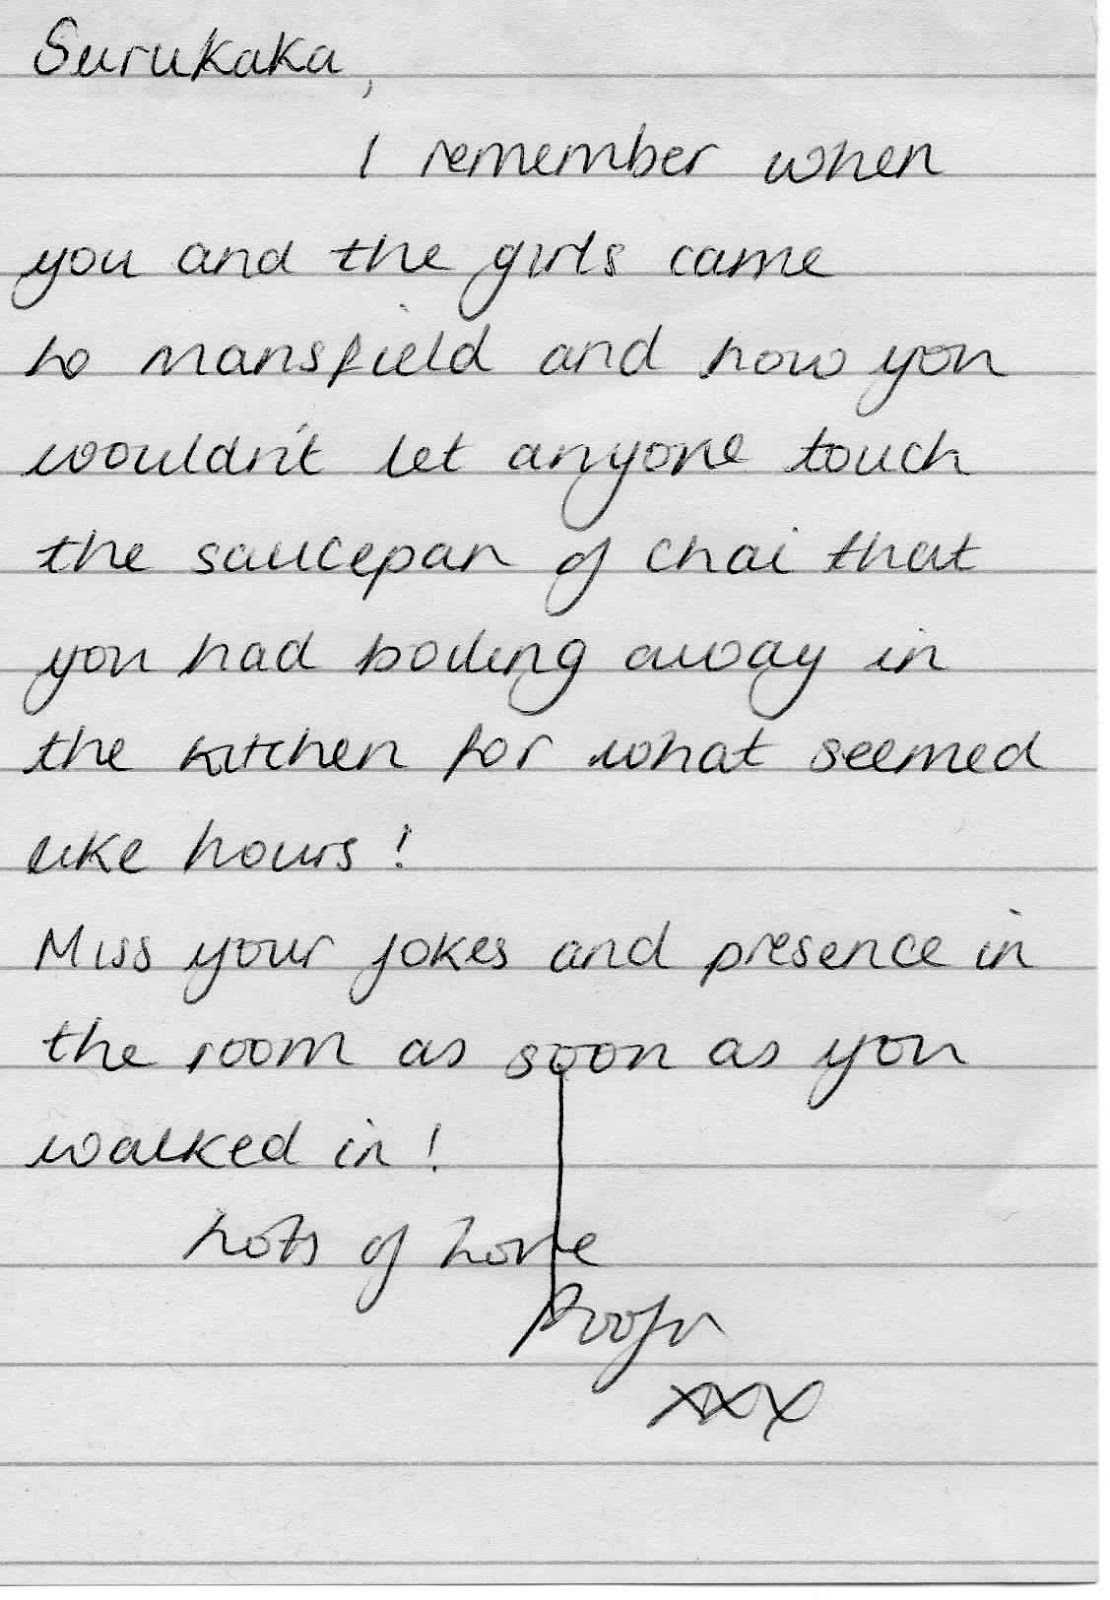 Surukaka,
I remember when
you and the girls came
to Mansfield and how you
wouldn't let anyone touch
the saucepan of chai that
you had boiling away in
the kitchen for what seemed
like hours!
Miss your jokes and presence in
the room as soon as you
walked in!
Lots of Love
xxx